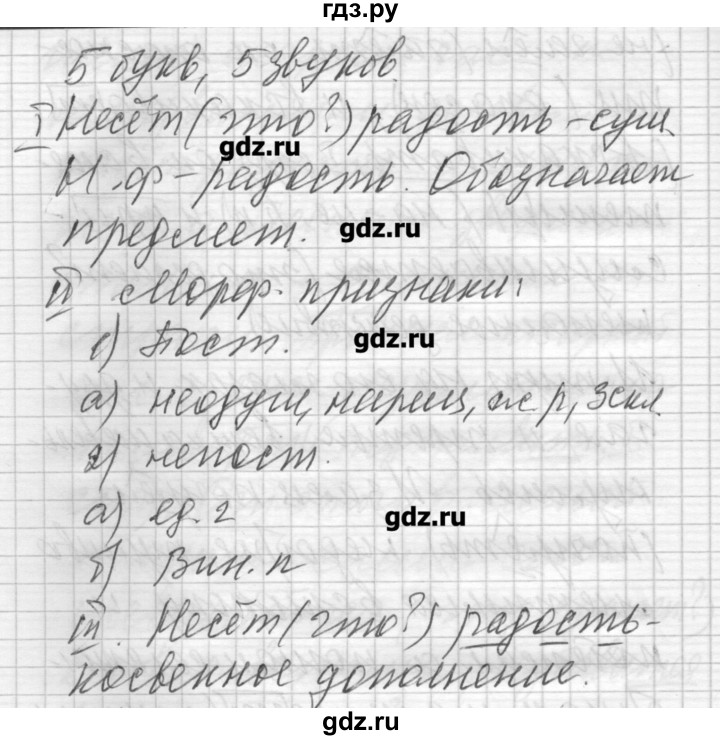 гдз.ру
5 букв, 5 звуков.
I Несёт (что?) радость - сущ.
gdz.ru
Н.ф - радость. Обозначает
предмет.
gdz.ru
II Морф. признаки:
1) Пост.
gdz.ru
а) неодуш, нариц, ж. р, 3 скл
2) непост.
а) ед. ч
gdz.ru
б) Вин. п
III. Несёт (что?) радость -
косвенное дополнение.
gdz.ru